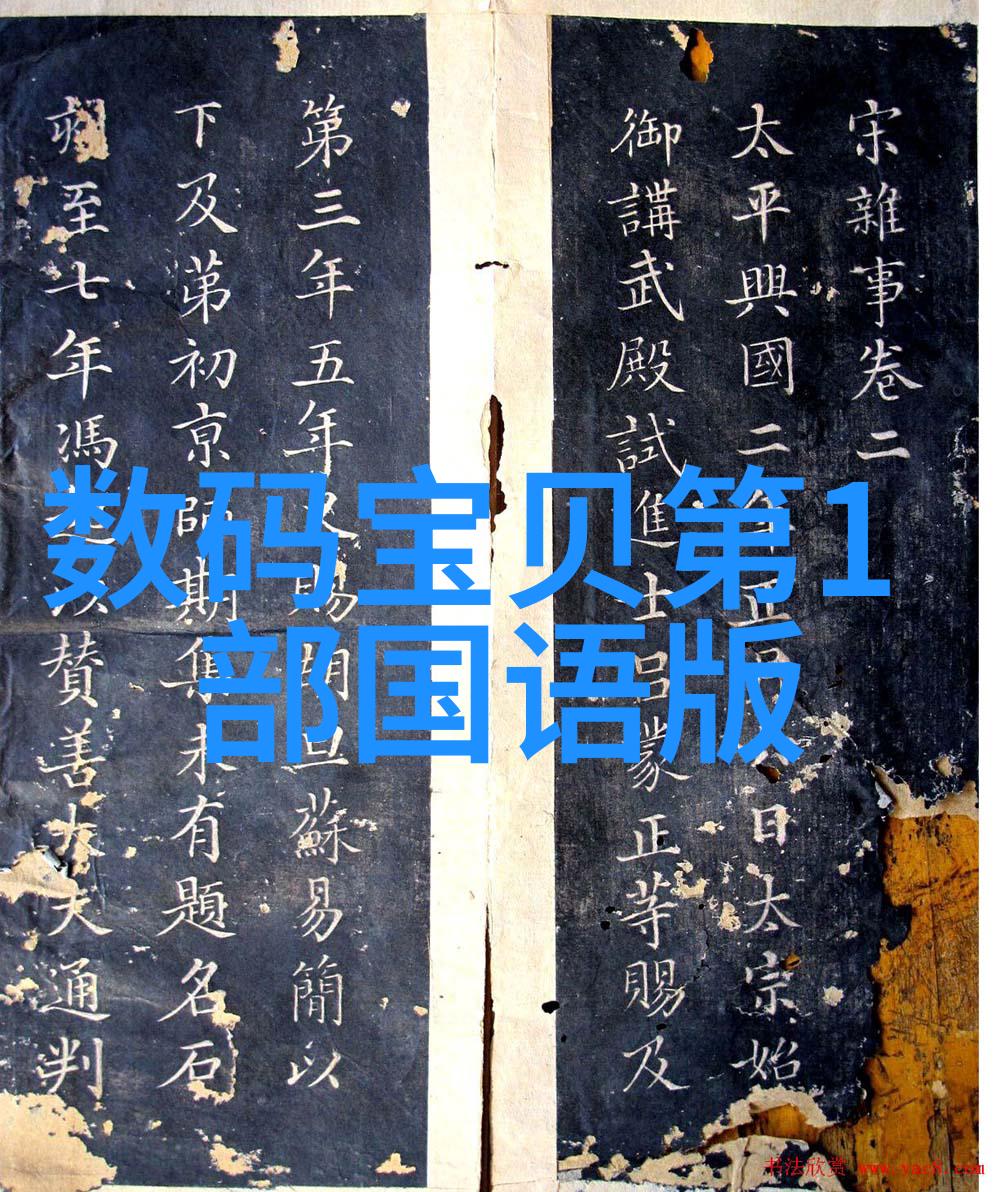 宋雜事卷二
太平興國二年正月日太宗始
御講武殿試進士呂蒙正等賜及
第三年五年又賜胡旦蘇易簡以
下及苐初京師期集未有題名石
至七年馮以贊善大夫通判
数码宝贝第1
部国语版
书法欣赏 www.yac8.com